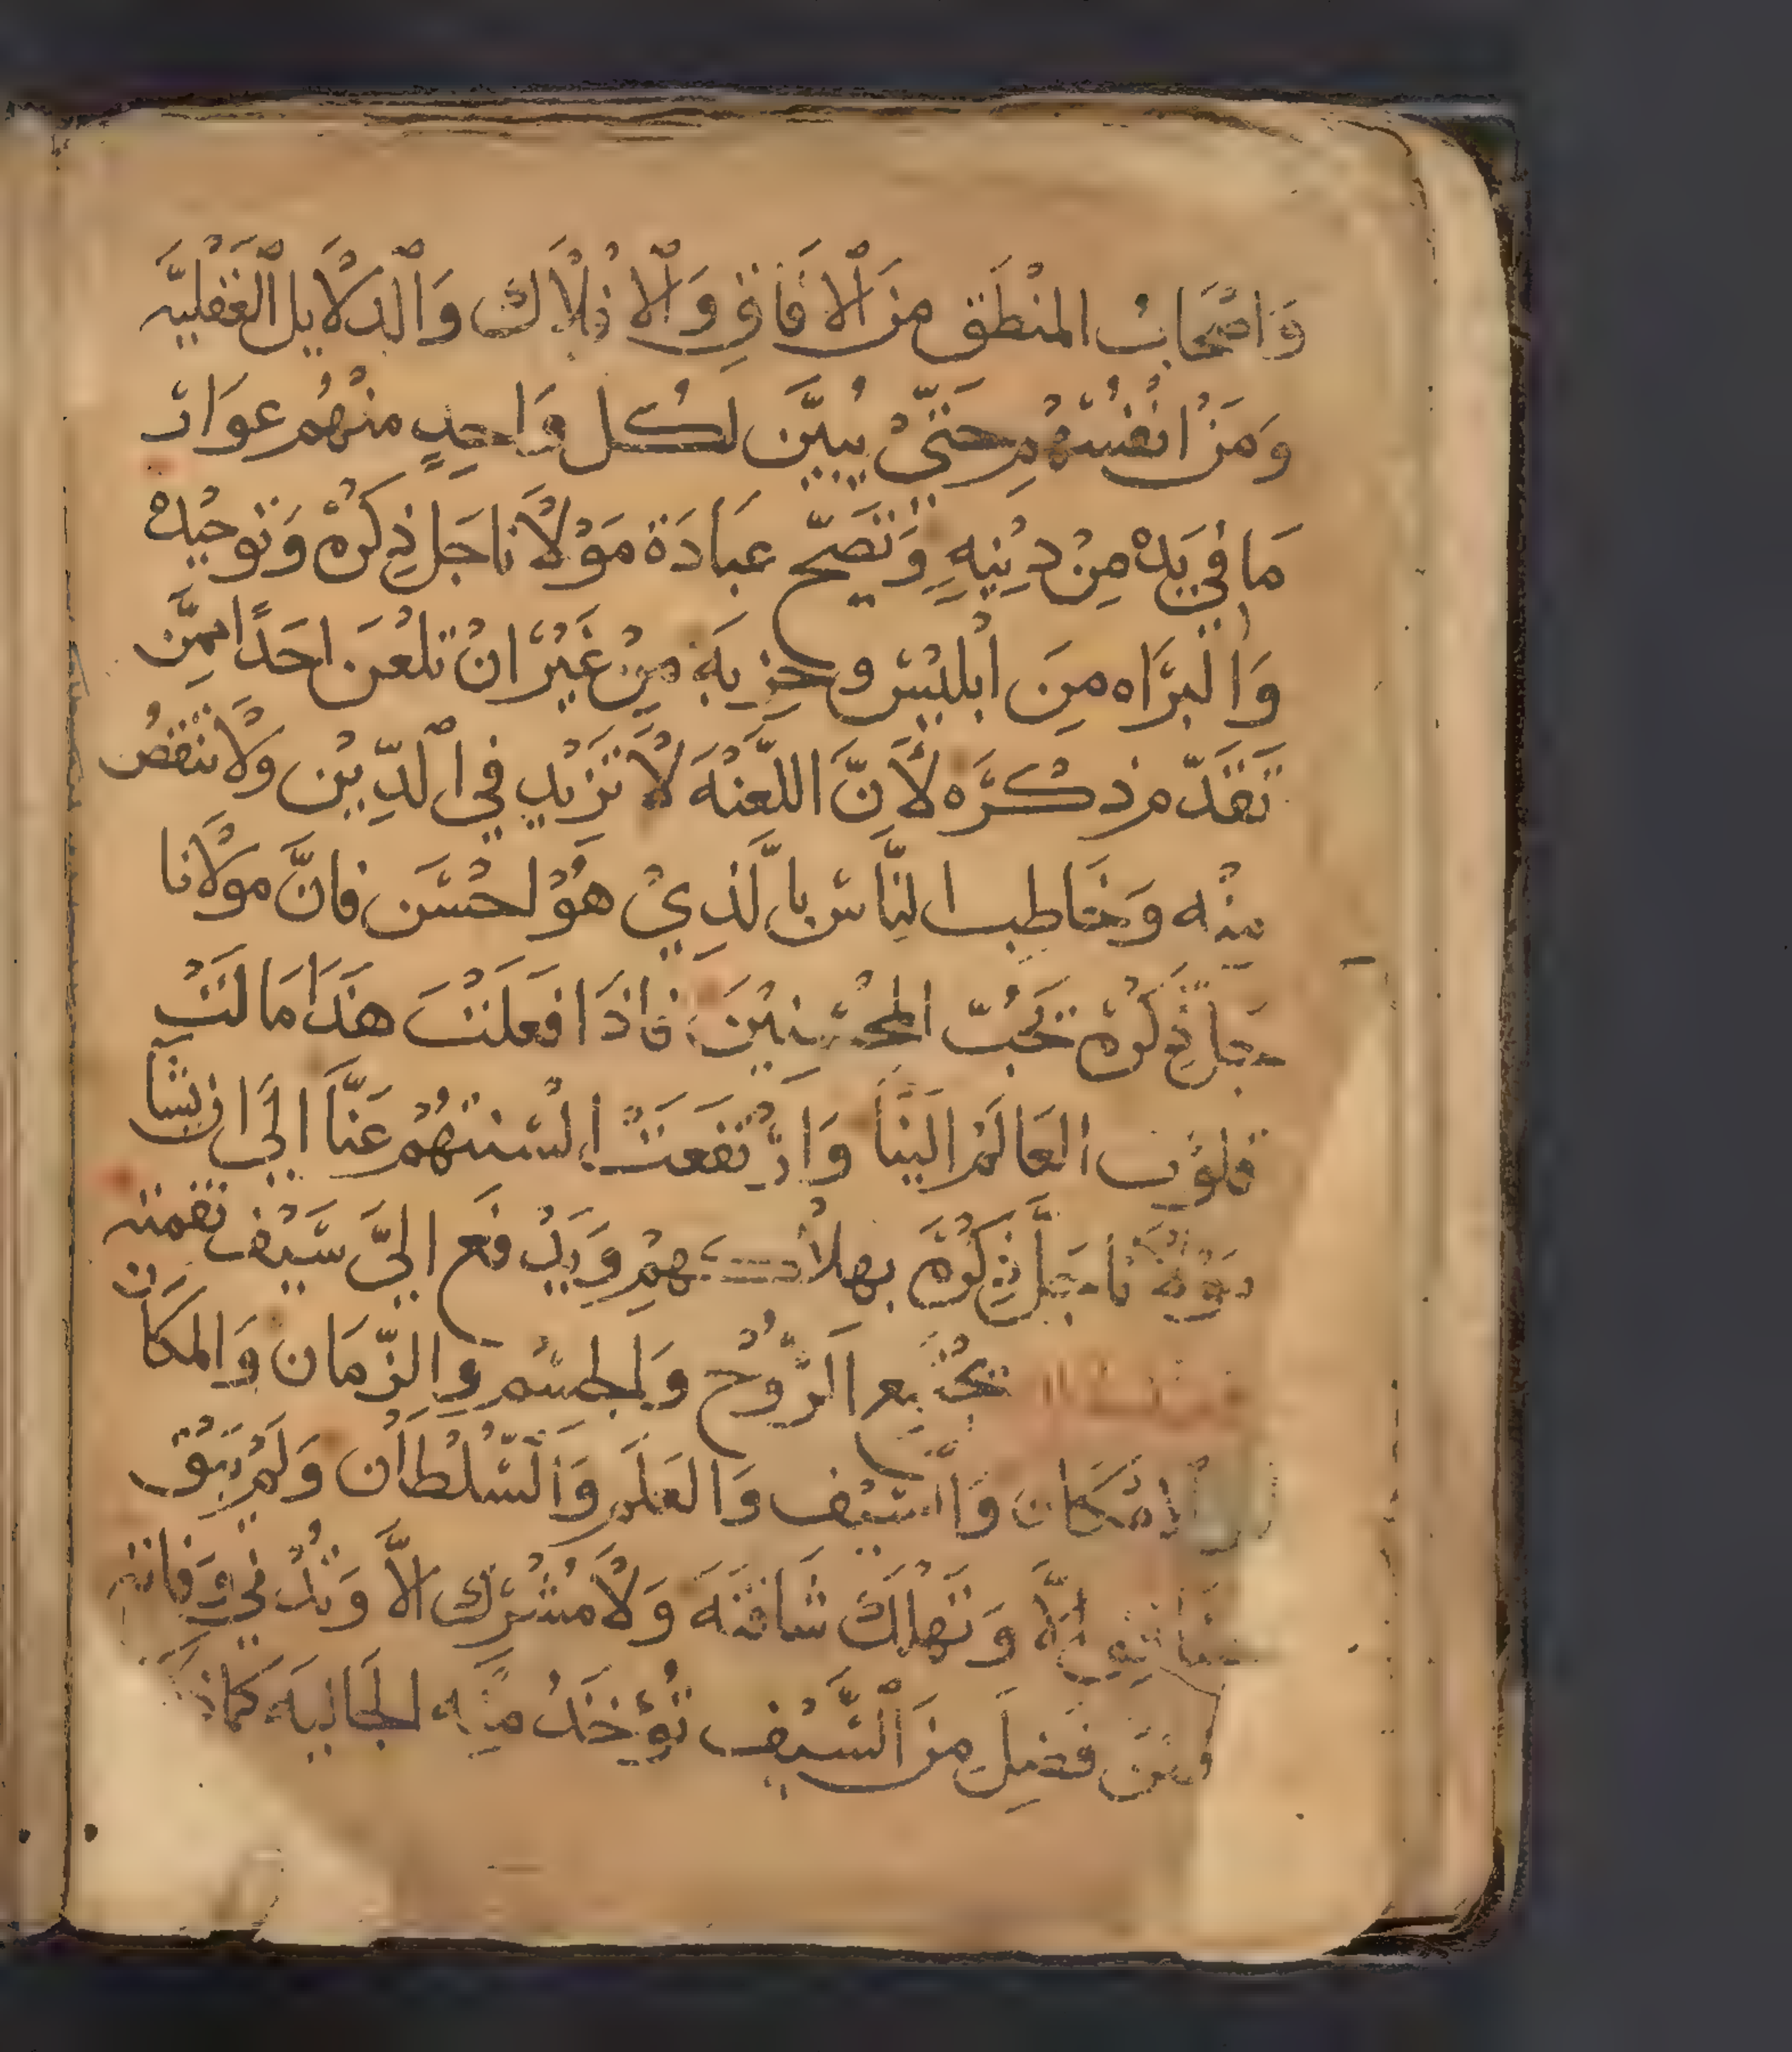 وَاصْحَابُ المنْطَق مِنَ ٱلافَاقِ وَٱلافْلاَك وَٱلدلاَيل ٱلْعَقْليَّه
وَمَنْ انفُسْهُم حَتَّىْ يُبيَّن لكُل وَاحِدٍ منْهُم عوَارَ
مَا في يَدهْ مِنْ دِيْنِهِ وَتَصَحّ عبَادَة مَوْلاَنا جَل ذِكرُهْ وَتَوحيْدهْ
وَالْبرَّاه مِنَ ابْليْسْ وحزِبهَ مِنْ غَيْرْ انْ تلْعَن احَدًا ممَّن
تَقَدَّم ذكْرَه لأَنَّ اللَّعْنَهَ لاَ تَزيْد في ٱلدِّيْن وَلاَ تنْقصُ
مِنْه وَخَاطِب النَّاسْ بِالَّذِيْ هُوْ لحسَن فانَّ مولاَنا
جَل ذِكْرُهْ يَحُبّ المحْسِنيْنَ فاذَا فَعَلْتْ هَذَا مَالَتْ
قلوْب العَالَمْ اليْنَا وَارْتَفَعَتْ السْنتهُمْ عَنَّا الَى ان يشَا
مَوْلاَنا جَل ذِكْرُهْ بهلاْكهِمْ وَيَدْفَع اليَّ سَيْف نقمته
يجْتَمِع الرُّوْح وَالجسْم وَالزّمَان وَالمكَان
وَالامْكَان وَالسَّيْف وَالعَلَم وَالسُّلْطاَن وَلَمْ يَبْقَ
الاَّ وَتَهْلك شَافتَهَ وَلاَ مُشْركْ الاَّ وَتَدْني وَفَاته
وَمَنْ فَضِلَ مِنَ ٱلسَّيْف تُؤْخَذُ مِنْه الجَاليَه كمَا